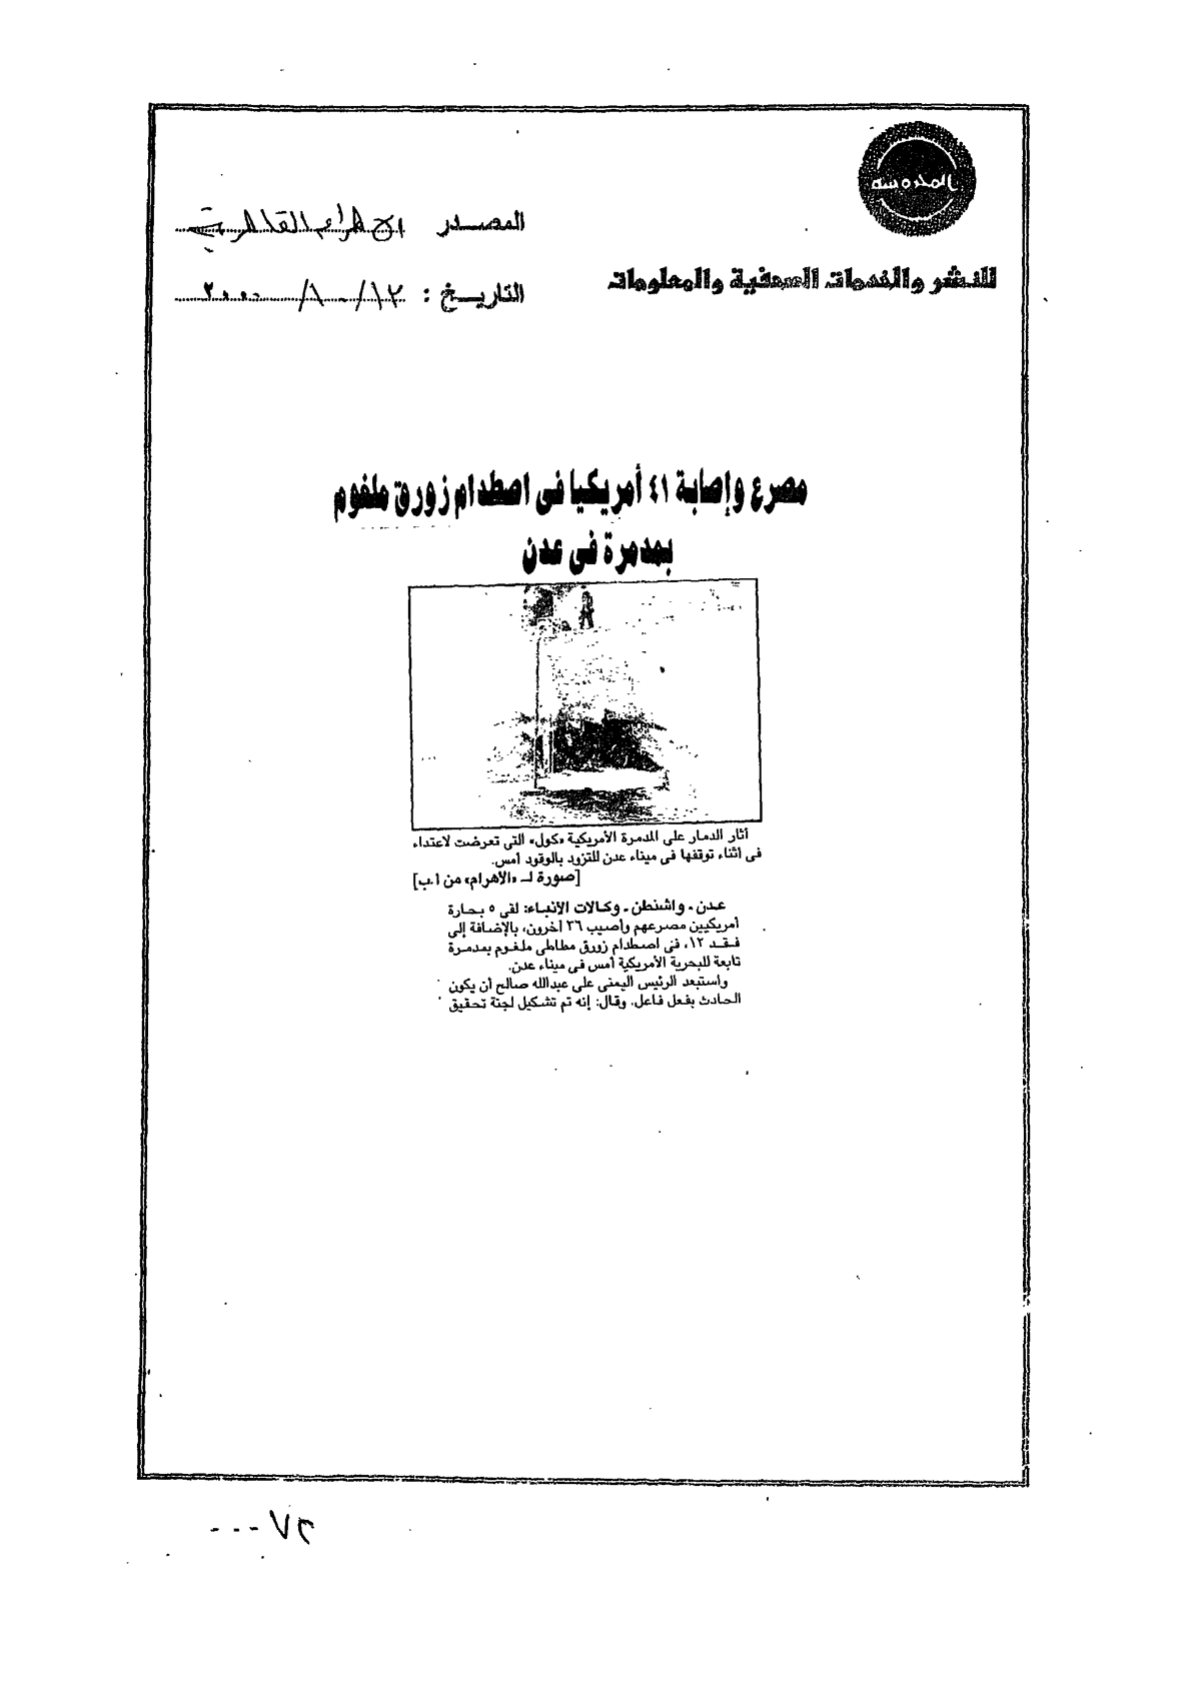 المحروسه
للنشر والخدمات الصحفية والمعلومات
المصدر الاهرام القاهرية
التاريخ : ١٣/ ١٠/ ٢٠٠٠
مصرع وإصابة ٤١ أمريكيا فى اصطدام زورق ملغوم
بمدمرة فى عدن
آثار الدمار على المدمرة الأمريكية «كول» التى تعرضت لاعتداء
فى أثناء توقفها فى ميناء عدن للتزود بالوقود أمس.
[صورة لـ «الأهرام» من أ.ب]
عدن ـ واشنطن ـ وكالات الأنباء: لقى ٥ بحارة
أمريكيين مصرعهم وأصيب ٣٦ آخرون، بالإضافة إلى
فقد ١٢، فى اصطدام زورق مطاطى ملغوم بمدمرة
تابعة للبحرية الأمريكية أمس فى ميناء عدن.
واستبعد الرئيس اليمنى على عبدالله صالح أن يكون
الحادث بفعل فاعل. وقال: إنه تم تشكيل لجنة تحقيق